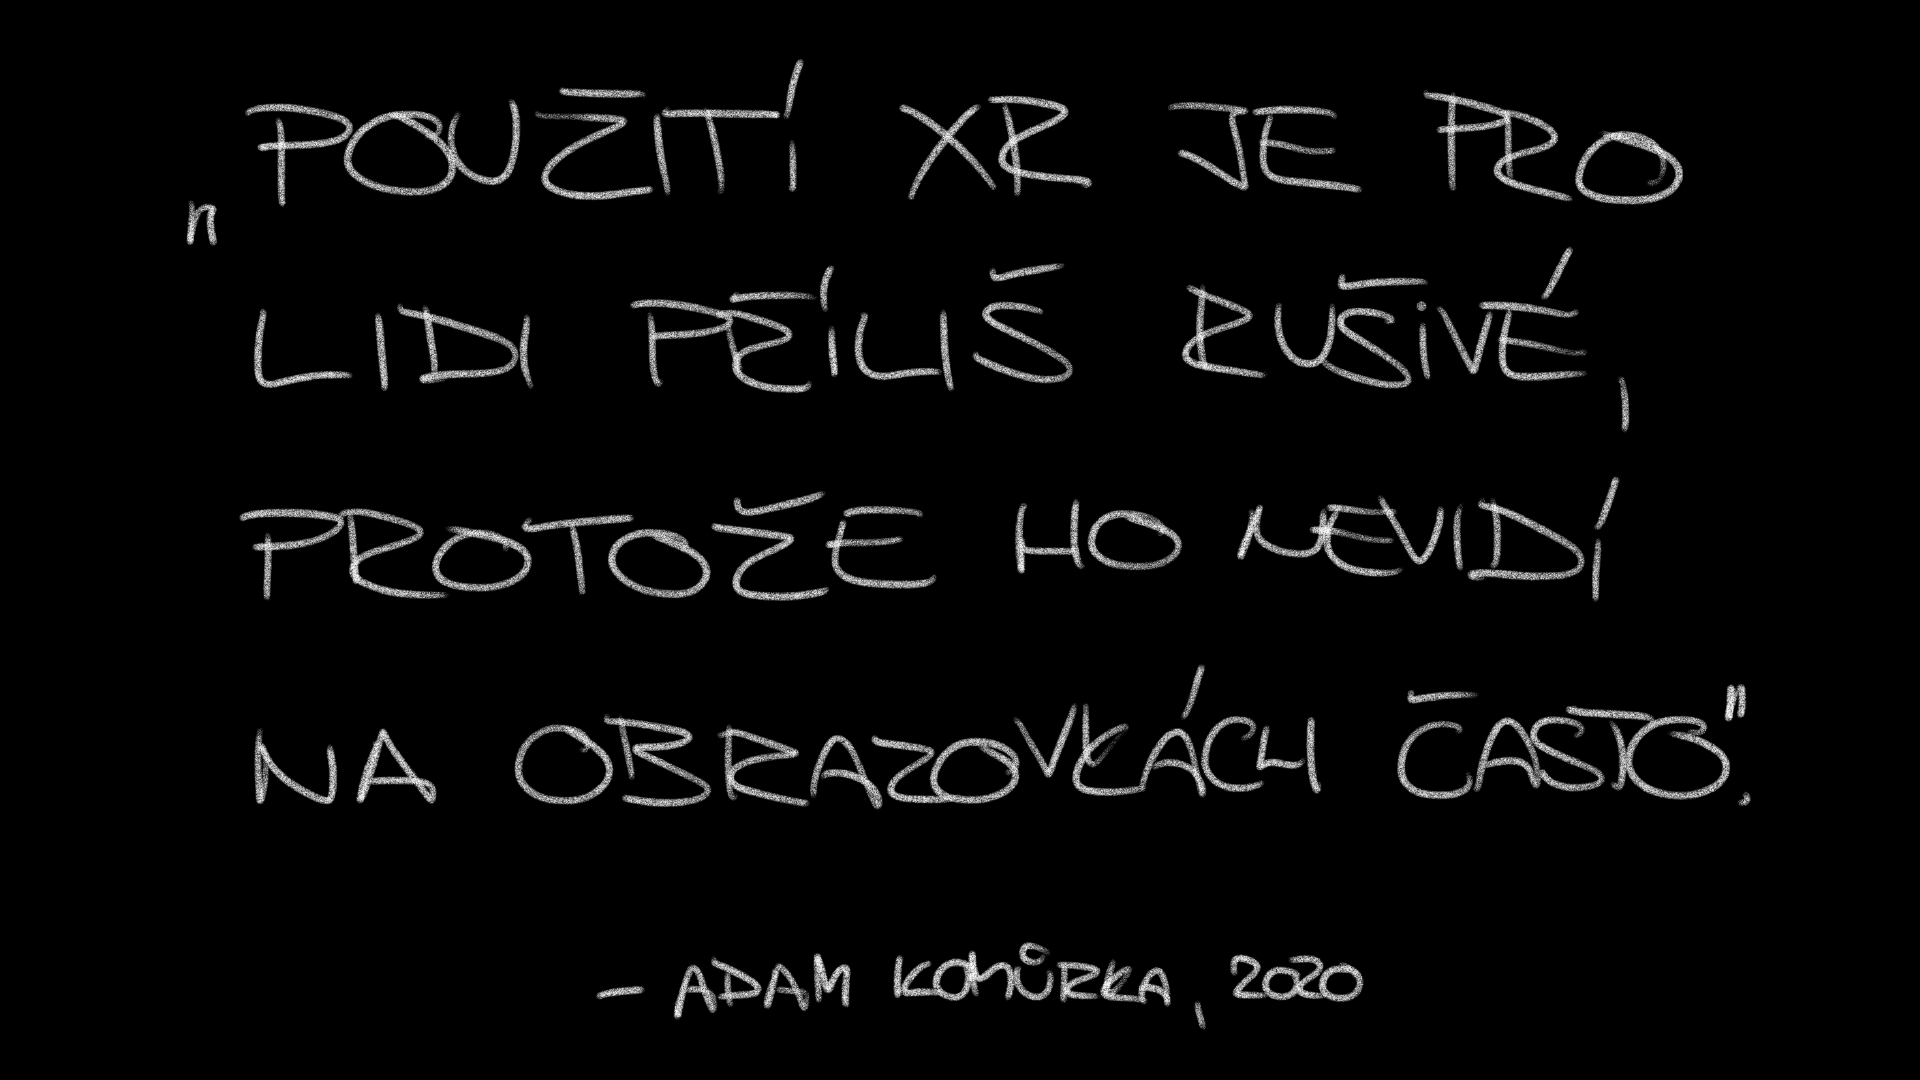 „POUŽITÍ XR JE PRO
LIDI PŘÍLIŠ RUŠIVÉ,
PROTOŽE HO NEVIDÍ
NA OBRAZOVKÁCH ČASTO".
– ADAM KOHŮRKA, 2020